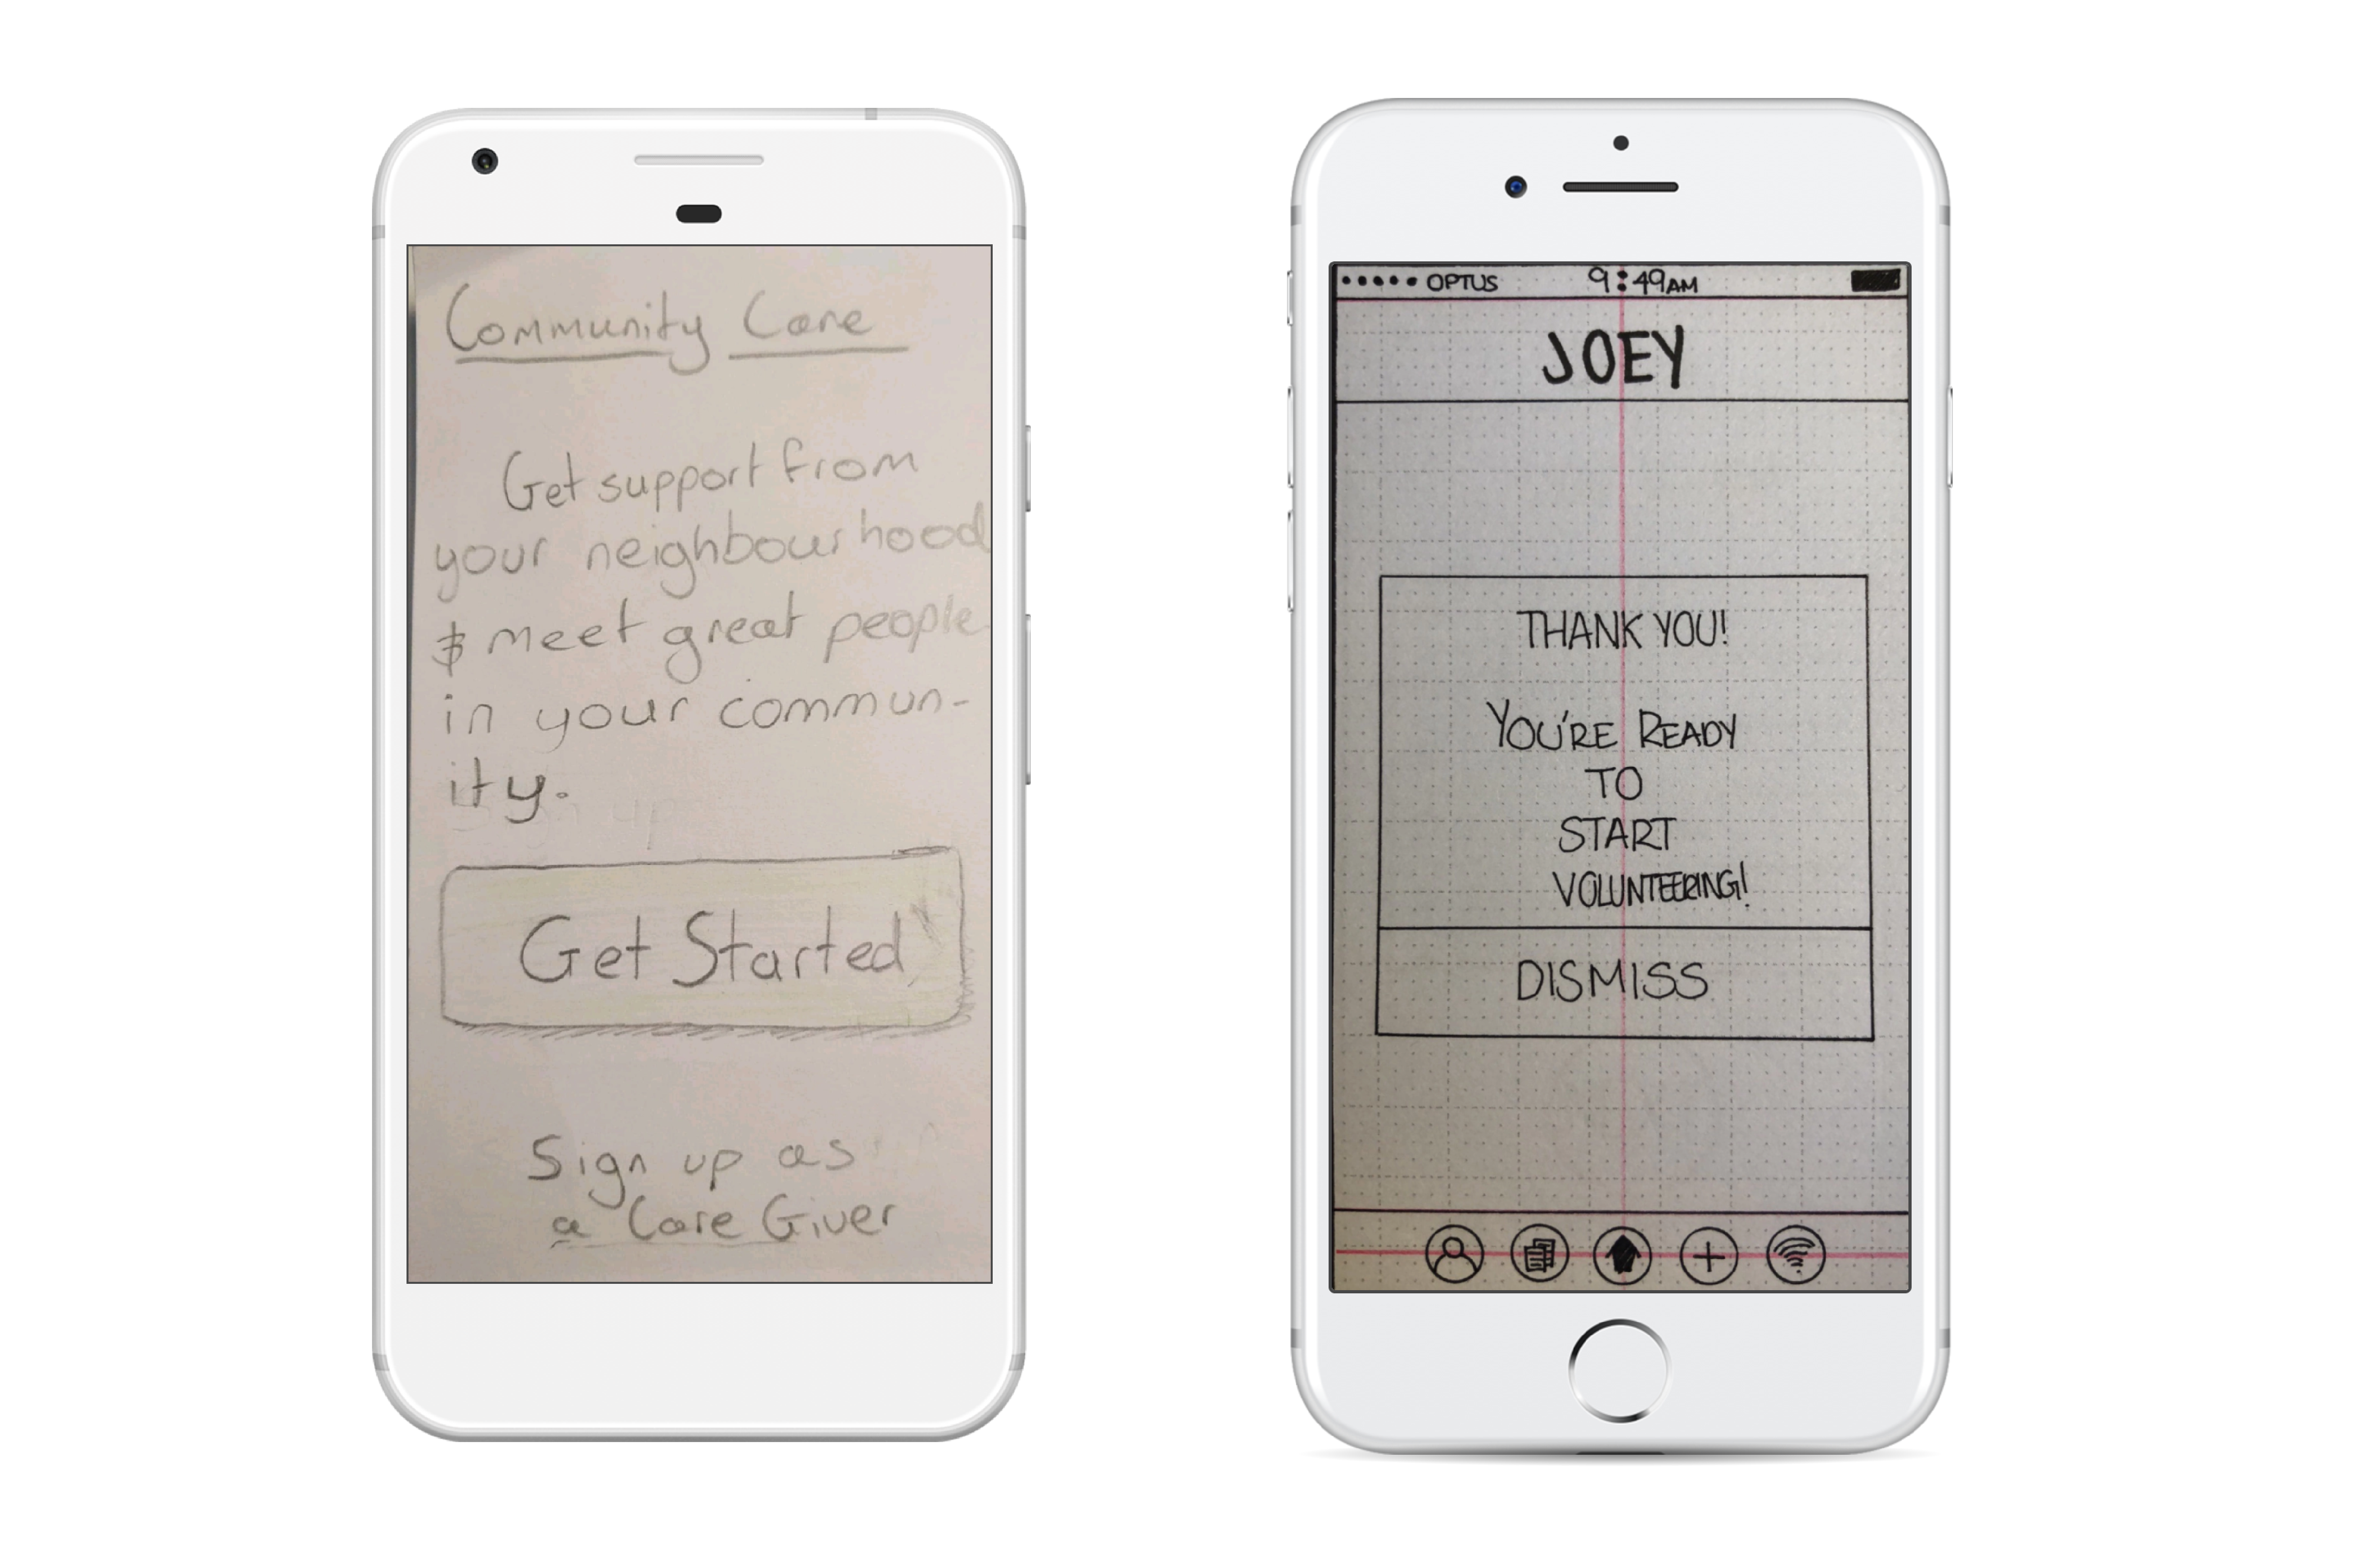 Community Care
Get support from
your neighbourhood
& meet great people
in your commun-
ity.
Get Started
Sign up as
a Care Giver
OPTUS 9:49AM
JOEY
THANK YOU!
YOU'RE READY
TO
START
VOLUNTEERING!
DISMISS